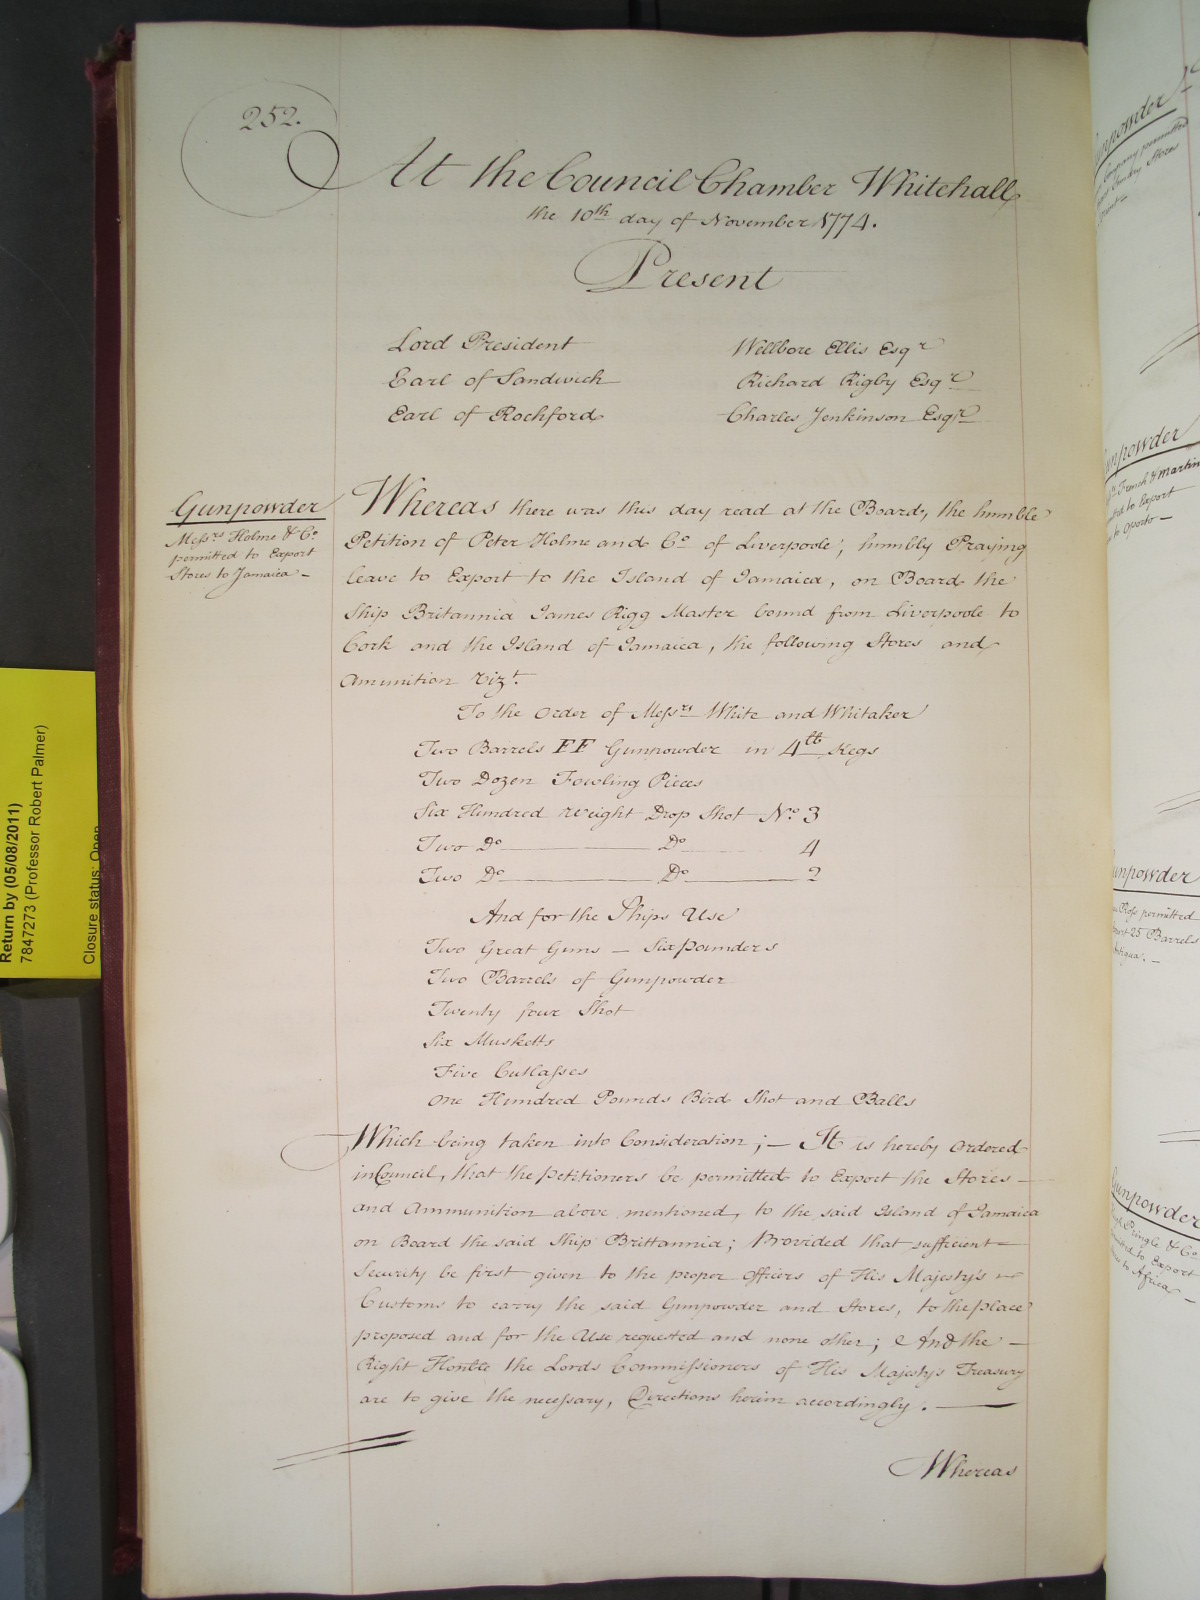 252.
At the Council Chamber Whitehall
the 10th day of November 1774.
Present
Lord President
Earl of Sandwich
Earl of Rochford
Wellbore Ellis Esqr
Richard Rigby Esqr
Charles Jenkinson Esqr
Gunpowder
Messrs Holme & Co
permitted to Export
Stores to Jamaica -
Whereas there was this day read at the Board, the humble
Petition of Peter Holme and Co of Liverpoole; humbly Praying
leave to Export to the Island of Jamaica, on Board the
Ship Britannia James Rigg Master bound from Liverpoole to
Cork and the Island of Jamaica, the following Stores and
Amunition Vizt.
To the Order of Messrs White and Whitaker
Two Barrels FF Gunpowder in 4lb Kegs
Two Dozen Fowling Pieces
Six Hundred weight Drop Shot No 3
Two Do Do 4
Two Do Do 2
And for the Ships Use
Two Great Guns - Six pounders
Two Barrels of Gunpowder
Twenty four Shot
Six Musketts
Five Cutlasses
One Hundred Pounds Bird Shot and Balls
Which being taken into Consideration; - It is hereby Ordered
in Council, that the Petitioners be permitted to Export the Stores -
and Ammunition above mentioned, to the said Island of Jamaica
on Board the said Ship Brittannia; Provided that sufficient
Security be first given to the proper Officers of His Majesty's
Customs to carry the said Gunpowder and Stores, to the place
proposed and for the Use requested and none other; And the -
Right Honble the Lords Commissioners of His Majesty's Treasury
are to give the necessary, Directions herein accordingly. -
Whereas
Return by (05/08/2011)
7847273 (Professor Robert Palmer)
Closure status: Open
Gunpowder
Company permitted
Stores
Gunpowder
French & Martin
to Export
to Oporto -
Gunpowder
Ross permitted
25 Barrels
Antigua. -
Gunpowder
Pringle & Co
to Export
to Africa -